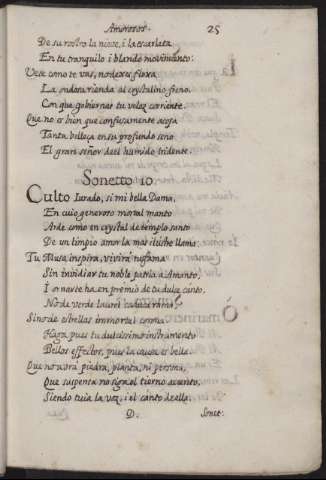 Amorosos. 25
De su rostro la nieue, i la escarlata
En tu tranquilo i blando mouimiento:
Vete como te vas, no dexes floxa
La undosa rienda al crystalino freno
Con que gobiernas tu veloz corriente.
Que no es bien que confusamente acoja
Tanta belleça en su profundo seno
El gran señor del humido tridente.
Sonetto 10
Culto Iurado, si mi bella Dama,
En cuio generoso mortal manto
Arde como en crystal de templo santo
De un limpio amor la mas illustre llama
Tu Musa inspira, viuirá tu fama
Sin inuidiar tu noble patria a Manto,
I os nos te ha en premio de tu dulce canto,
No de verde laurel caduca rama,
Sino de estrellas immortal corona.
Haga pues tu dulcissimo instrumento
Bellos effectos, pues la causa es bella:
Que no aurá piedra, planta, ni persona,
Que suspensa no siga el tierno accento,
Siendo tuia la voz, i el canto de ella.
D. Sonet: